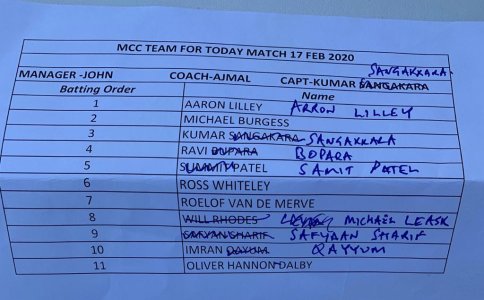 MCC TEAM FOR TODAY MATCH 17 FEB 2020
SANGAKKARA.
MANAGER -JOHN COACH-AJMAL CAPT-KUMAR SANGAKARA
Batting Order Name
1 AARON LILLEY ARRON LILLEY
2 MICHAEL BURGESS
3 KUMAR SANGAKARA SANGAKKARA
4 RAVI BOPARA
5 PATEL SAMIT PATEL
6 ROSS WHITELEY
7 ROELOF VAN DE MERVE
8 WILL RHODES MICHAEL LEASK
9 SAFYAN SHARIF SAFYAAN SHARIF
10 IMRAN QAYUM QAYYUM
11 OLIVER HANNON-DALBY